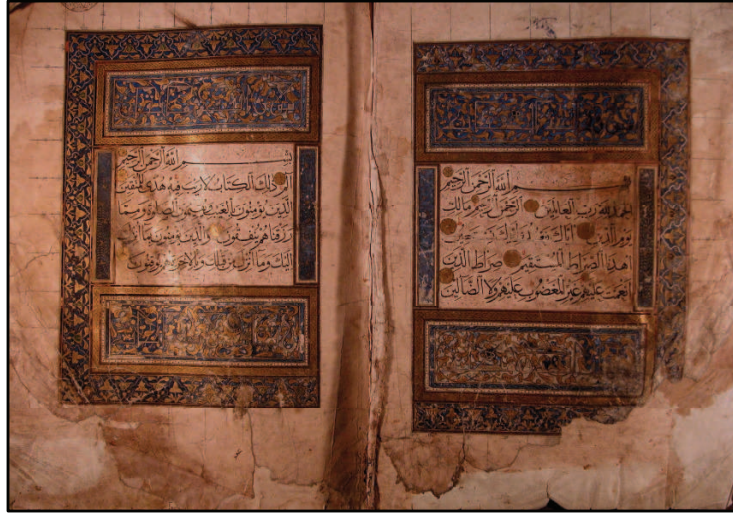 بسم الله الرحمن الرحيم
الحمد لله رب العالمين الرحمن الرحيم مالك
يوم الدين اياك نعبد واياك نستعين
اهدنا الصراط المستقيم صراط الذين
انعمت عليهم غير المغضوب عليهم ولا الضالين
بسم الله الرحمن الرحيم
الم ذلك الكتاب لا ريب فيه هدى للمتقين
الذين يؤمنون بالغيب ويقيمون الصلوة ومما
رزقناهم ينفقون والذين يؤمنون بما انزل
اليك وما انزل من قبلك وبالاخرة هم يوقنون